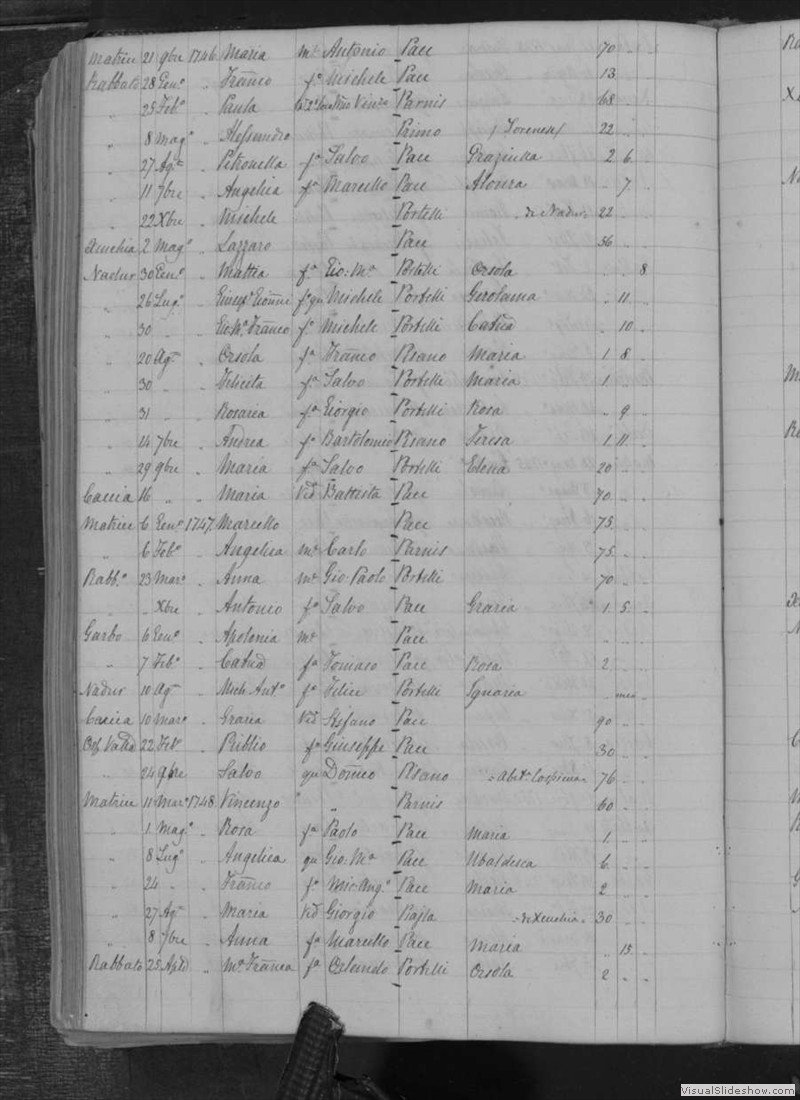 Matrice 21 9bre 1746 Maria m.e Antonio Pace 70 " "
Rabbato 28 Gen.o " Franco f.o Michele Pace 13 " "
" 25 Feb.o " Paula Vinzo Parnis 68 " "
" 8 Mag.o " Alessandro Primo 22 " "
" 27 Ag.to " Petronella f.a Salvo Pace Graziulla 2 6 "
" 11 7bre " Angelica f.a Marcello Pace Aloisea " 7 "
" 22 Xbre " Michele Portelli = di Nadur = 22 " "
Xeuchia 2 Mag.o " Lazzaro Pace 56 " "
Nadur 30 Gen.o " Mattia f.o Gio: M.a Portelli Orsola " " 8
" 26 Lug.o " Giovanni f.o qu Michele Portelli Gerolama " 11 "
" 30 " " Gio: M.a Franco f.o Michele Portelli Catrd " 10 "
" 20 Ag.to " Orsola f.a Franco Pisano Maria 1 8 "
" 30 " " Felicita f.a Salvo Portelli Maria 1 " "
" 31 " " Rosaria f.a Giorgio Portelli Rosa " 9 "
" 14 7bre " Andrea f.o Bartolomeo Pisano Teresa 1 11 "
" 29 9bre " Maria f.a Salvo Portelli Elena 20 " "
Caccia 16 " " Maria Vid Battista Pace 70 " "
Matrice 6 Gen.o 1747 Marcello Pace 73 " "
" 6 Feb.o " Angelica m.e Carlo Parnis 75 " "
Rabb.o 23 Mar.o " Anna m.e Gio: Paolo Portelli 70 " "
" " Xbre " Antonio f.o Salvo Pace Grazia 1 5 "
Garbo 6 Gen.o " Apolonia m.e Pace " " "
" 7 Feb.o " Catrd f.a Tomaso Pace Rosa 2 " "
Nadur 10 Ag.to " Mich: Ant.o f.o Felice Portelli Ignazia "
Caccia 10 Mar.o " Grazia Vid Stefano Pace 90 " "
22 Feb.o " Publio f.o Giuseppe Pace 30 " "
" 24 9bre " Salvo qu Domco Pisano = Abit.e Cospicua = 76 " "
Matrice 11 Mar.o 1748 Vincenzo " " Parnis 60 " "
" 1 Mag.o " Rosa f.a Paolo Pace Maria 1 " "
" 8 Lug.o " Angelica qu Gio: M.a Pace Ubaldesca 6 " "
" 24 " " Franco f.o Mic: Ang.o Pace Maria 2 " "
" 27 Ag.to " Maria Vid Giorgio Rajla = di Xeuchia = 30 " "
" 8 7bre " Anna f.a Marcello Pace Maria " 13 "
Rabbato 25 Aple " M.a Franca f.a Orlando Portelli Orsola 2 " "
VisualSlideshow.com